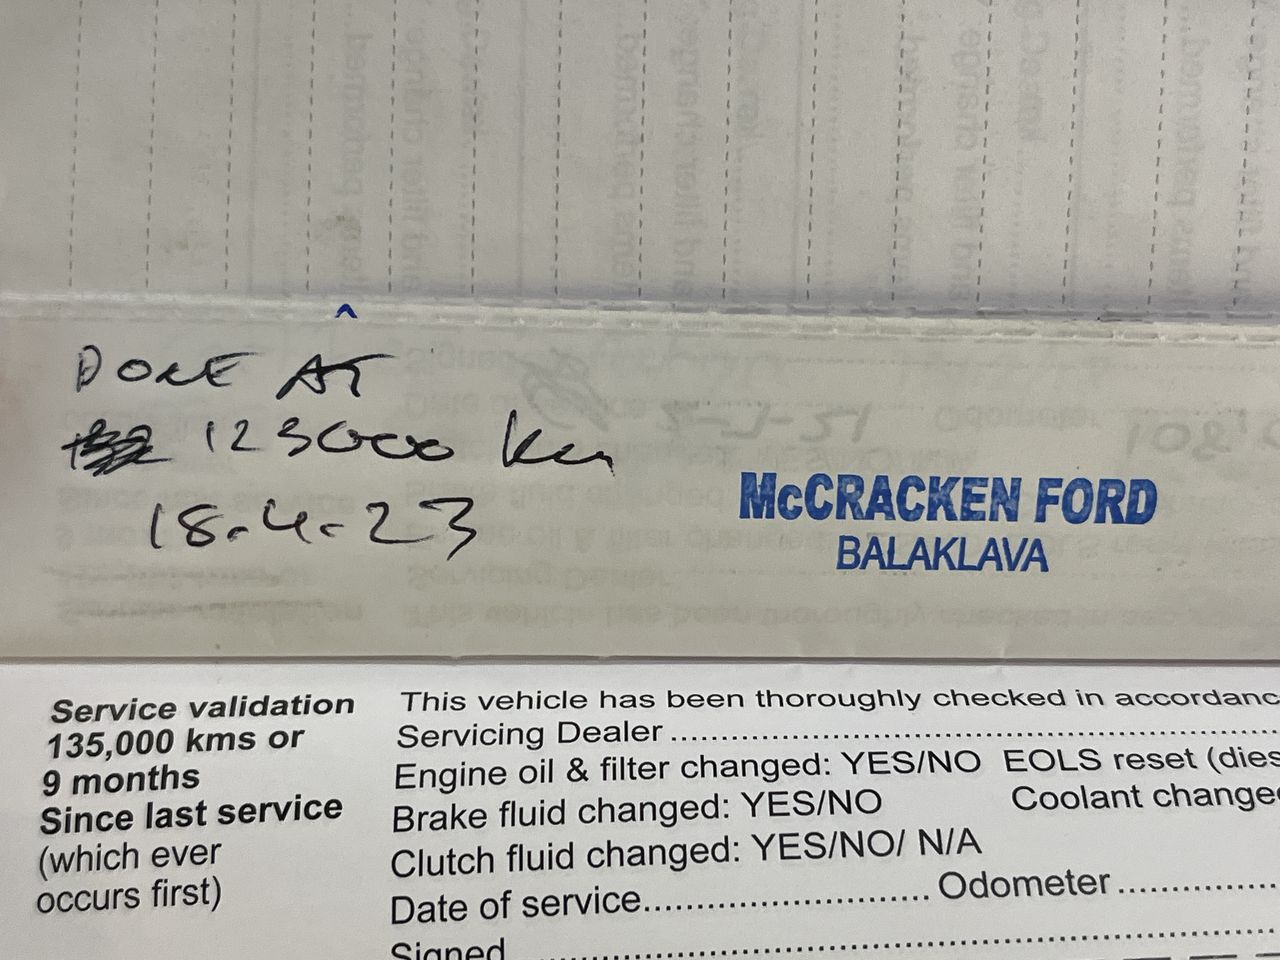 ^
DONE AT
123000 km
18.4.23
McCRACKEN FORD
BALAKLAVA
Service validation
135,000 kms or
9 months
Since last service
(which ever
occurs first)
This vehicle has been thoroughly checked in accordanc
Servicing Dealer
Engine oil & filter changed: YES/NO EOLS reset (dies
Brake fluid changed: YES/NO Coolant change
Clutch fluid changed: YES/NO/ N/A
Date of service Odometer
Signed